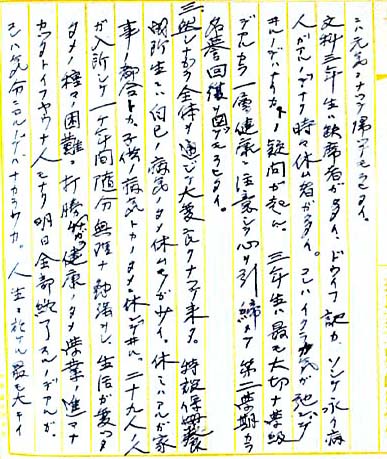 ニハ元気ニナツテ帰ツテモラヒタイ。
文科三年生ハ欠席者ガ多イ、ドウイフ訳カ、ソンナ永イ病
人ガ 時々休ム者ガ多イ。コレハイクラカ気ガ弛ンデ
ヰルノデナイカトノ疑問ガ起ル。三年生ハ最モ大切ナ学級
デアルカラ一層健康ニ注意シテ心ヲ引締メテ第二学期カラ
名誉回復ヲ図ツテモラヒタイ。
三、然シナガラ全体ヲ通ジテ大変良クナツテ来タ。特設保姆養
生ハ自己ノ病気ノタメ休ムモノガ少イ。休ミハスルガ家
事ノ都合トカ子供ノ病気トカノタメ休ンデヰル。二十九人ノ人
ガ入所シテ一ケ年間随分無理ナ勉強ヲシ、生活ガ変ツタ
タメノ種々ノ困難ニ打勝ツテ健康ノタメ学業ノ進マナ
カツタトイフヤウナ人モナク明日全部終了スルノデアルガ、
コレハ気分ニヨルノデハナカラウカ。人生ニ於ケル最モ大キイ